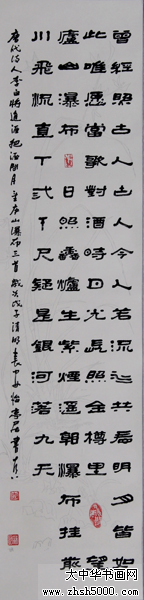 曾經照古人今人若流水共看明月皆如
此唯愿當歌對酒時月光長照金樽里 望
廬山瀑布 日照香爐生紫煙遥看瀑布挂前
川飛流直下三千尺疑是銀河落九天
唐代诗人李白將進酒把酒問月望庐山瀑布三首 歲次戊子清明
大中华书画网
www.zhsh5000.com